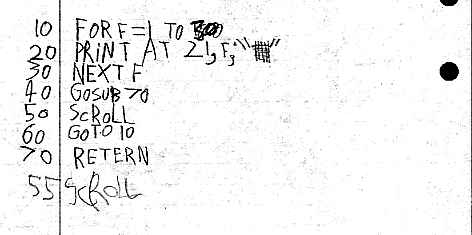 10 FOR F=1 TO 300
20 PRINT AT 21,F;"▦"
30 NEXT F
40 GOSUB 70
50 SCROLL
60 GOTO 10
70 RETERN
55 SCROLL